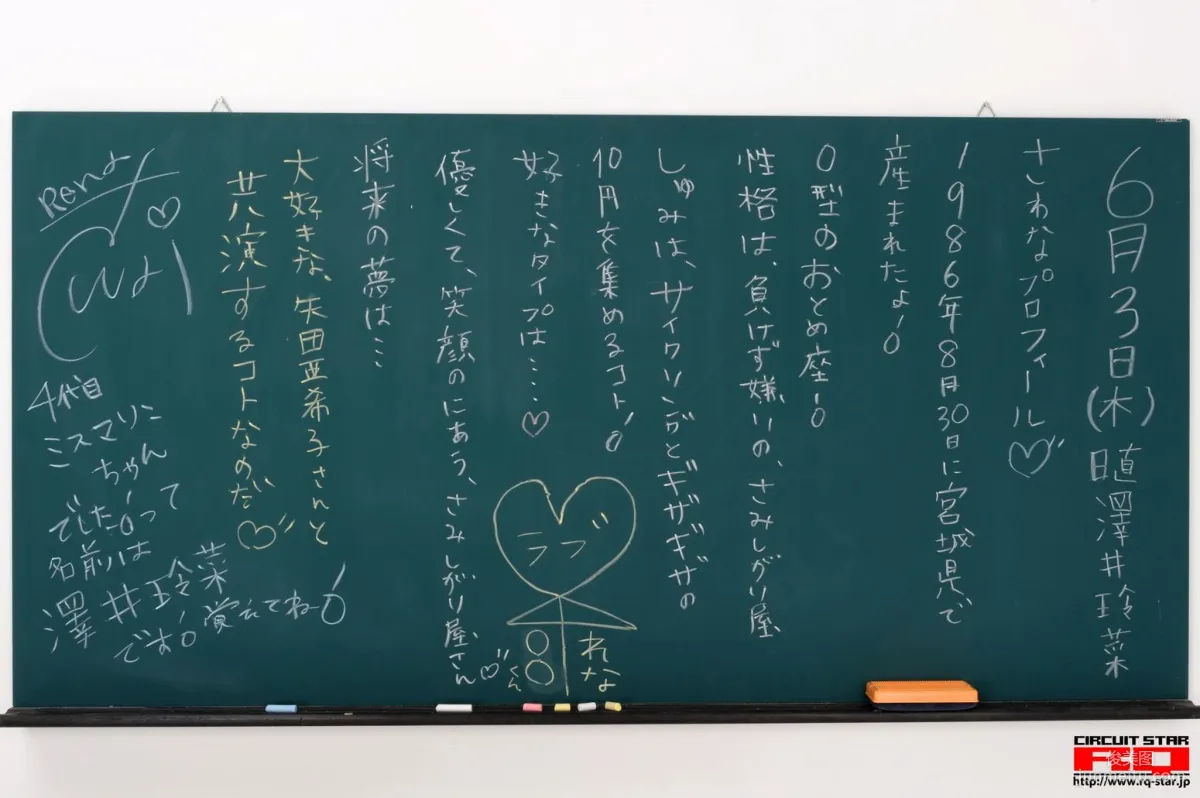 6月3日(木) 日直 澤井玲菜
さわなプロフィール♡
1986年8月30日に宮城県で
産まれたよ!!
O型のおとめ座!!
性格は、負けず嫌いの、さみしがり屋
しゅみは、サイクリングとギザギザの
10円を集めるコト!!
好きなタイプは……♡
優しくて、笑顔のにあう、さみしがり屋さん♡
将来の夢は…
大好きな、矢田亜希子さんと
共演するコトなのだ♡
ラブ
れな
○○くん
Rena
4代目
ミスマリンちゃん
でした!!って
名前は
澤井玲菜
です!! 覚えてね!!
CIRCUIT STAR
RQ
俊美图
http://www.rq-star.jp